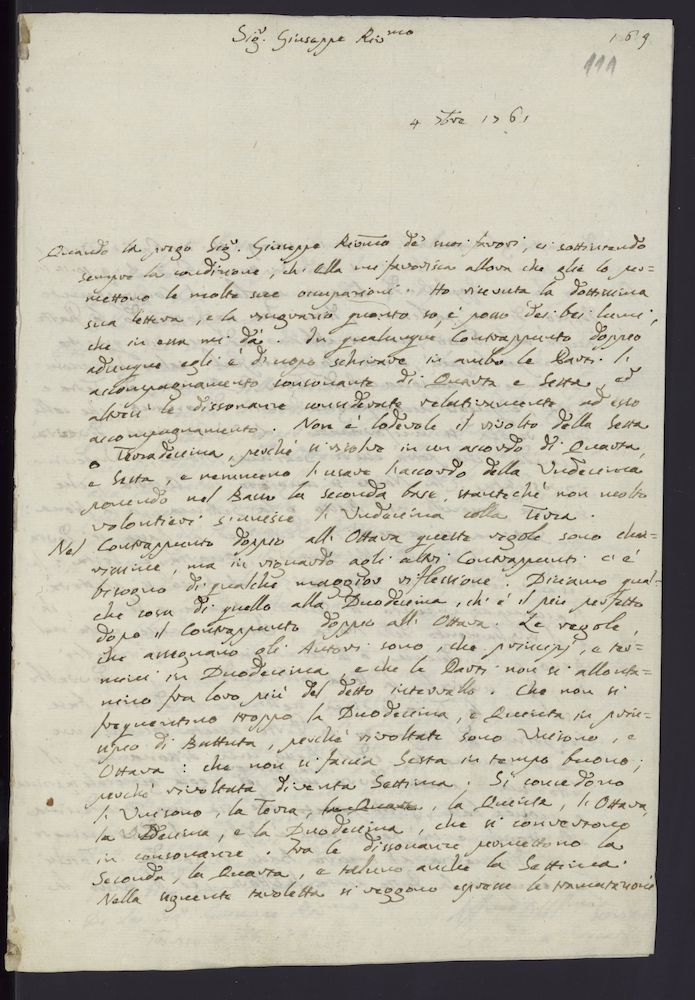 Sig.r Giuseppe Riv.mo
169
111
4 7bre 1761
Quando la prego Sig.r Giuseppe Riv.mo de' suoi favori, ci sottintendo
sempre la condizione, che Ella mi favorisca allora che glie lo per=
mettono le molte sue occupazioni. Ho ricevuta la dottissima
sua lettera, e la ringrazio quanto so, e posso dei bei lumi,
che in essa mi dà. In qualunque Contrappunto doppio
adunque egli è d'uopo schivare in ambo le Parti l'
accompagnamento consonante di Quarta e Sesta, ed
altresì le dissonanze considerate relativamente ad esso
accompagnamento. Non è lodevole il rivolto della Sesta
o Terzadecima, perchè si risolve in un accordo di Quarta,
e Sesta, e nemmeno l'usare l'accordo della Undecima
ponendo nel Basso la seconda base, stantechè non molto
volontieri s'unisce l'Undecima colla Terza.
Nel Contrappunto doppio all'Ottava queste regole sono chia=
rissime, ma in riguardo agli altri Contrappunti c'è
bisogno di qualche maggior riflessione. Diciamo qual=
che cosa di quello alla Duodecima, ch'è il più perfetto
dopo il Contrappunto doppio all'Ottava. Le regole,
che assegnano gli Autori sono, che principj, e ter=
mini in Duodecima, e che le Parti non si allonta=
nino fra loro più del detto intervallo. Che non si
frequentino troppo la Duodecima, e Quinta in prin=
cipio di Battuta, perchè rivoltate sono Unisono, e
Ottava: che non si faccia Sesta in tempo buono;
perchè rivoltata diventa Settima. Si concedono
l'Unisono, la Terza, la Quarta, la Quinta, l'Ottava,
la Decima, e la Duodecima, che si convertono
in consonanze. Fra le dissonanze permettono la
Seconda, la Quarta, e taluno anche la Settima.
Nella seguente tavoletta si veggono espresse le tramutazioni